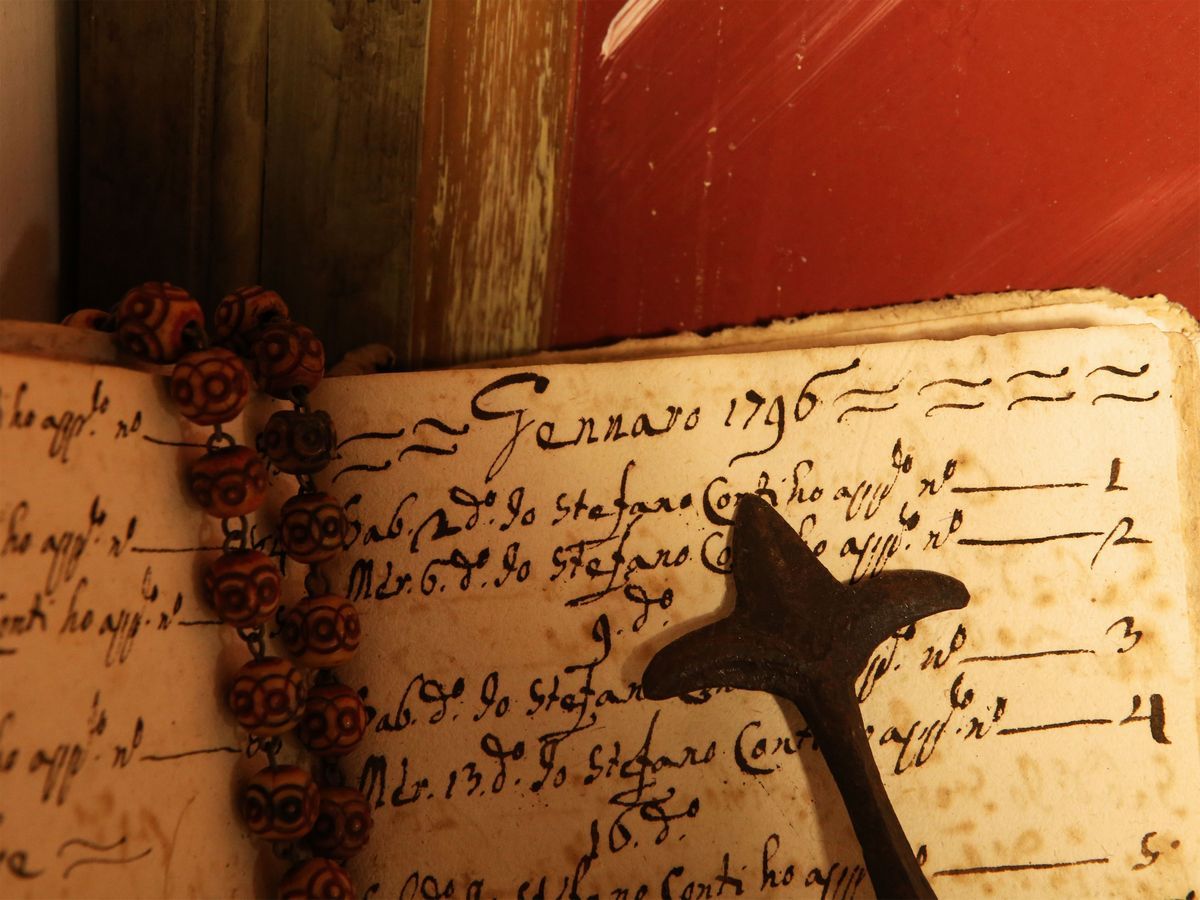 ho app.to n.o
ho app.to n.o
Conti ho app.to n.o
ho app.to n.o
Gennaro 1796
Sab. 2 d.o Io Stefano Conti ho app.to n.o 1
Mer. 6. d.o Io Stefano Co ho app.to n.o 2
9. d.o
Sab. d.o Io Stefano n.o 3
Mer. 13. d.o Io Stefano Conti app.to n.o 4
16. d.o
Stefano Conti ho app 5